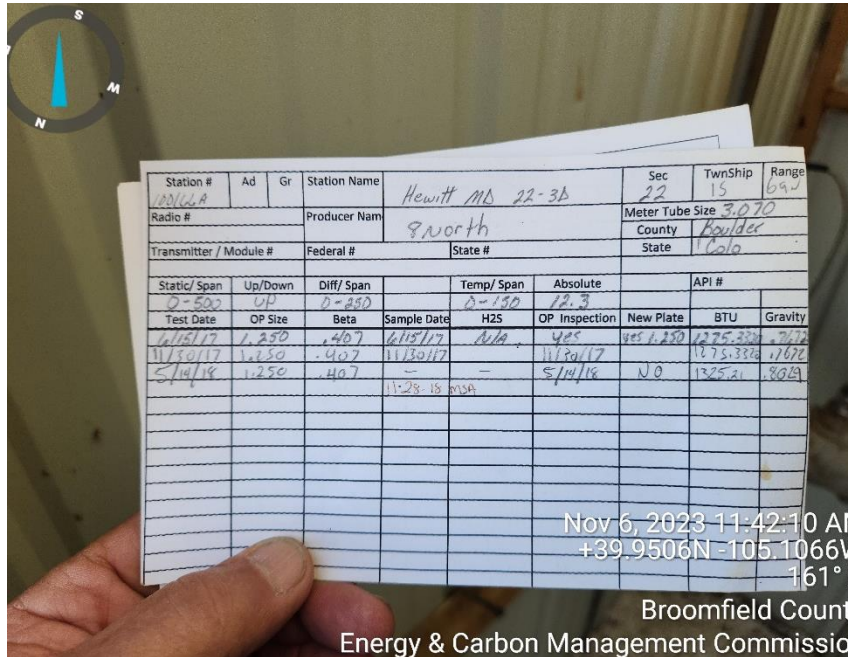 S
W
N
Station # Ad Gr Station Name Hewitt MD 22-3D Sec 22 TwnShip 1S Range 69W
Radio # Producer Nam 8 North Meter Tube Size 3.070
County Boulder
Transmitter / Module # Federal # State # State Colo
Static/ Span Up/Down Diff/ Span Temp/ Span Absolute API #
0-500 UP 0-250 0-150 12.3
Test Date OP Size Beta Sample Date H2S OP Inspection New Plate BTU Gravity
6/15/17 1.250 .407 6/15/17 N/A yes yes 1.250 1275.3320 .7672
11/30/17 1.250 .407 11/30/17 11/30/17 1275.3320 .7672
5/14/18 1.250 .407 – – 5/14/18 NO 1325.21 .8029
11-28-18 MSA
Nov 6, 2023 11:42:10 AM
+39.9506N -105.1066W
161°
Broomfield Count
Energy & Carbon Management Commissio